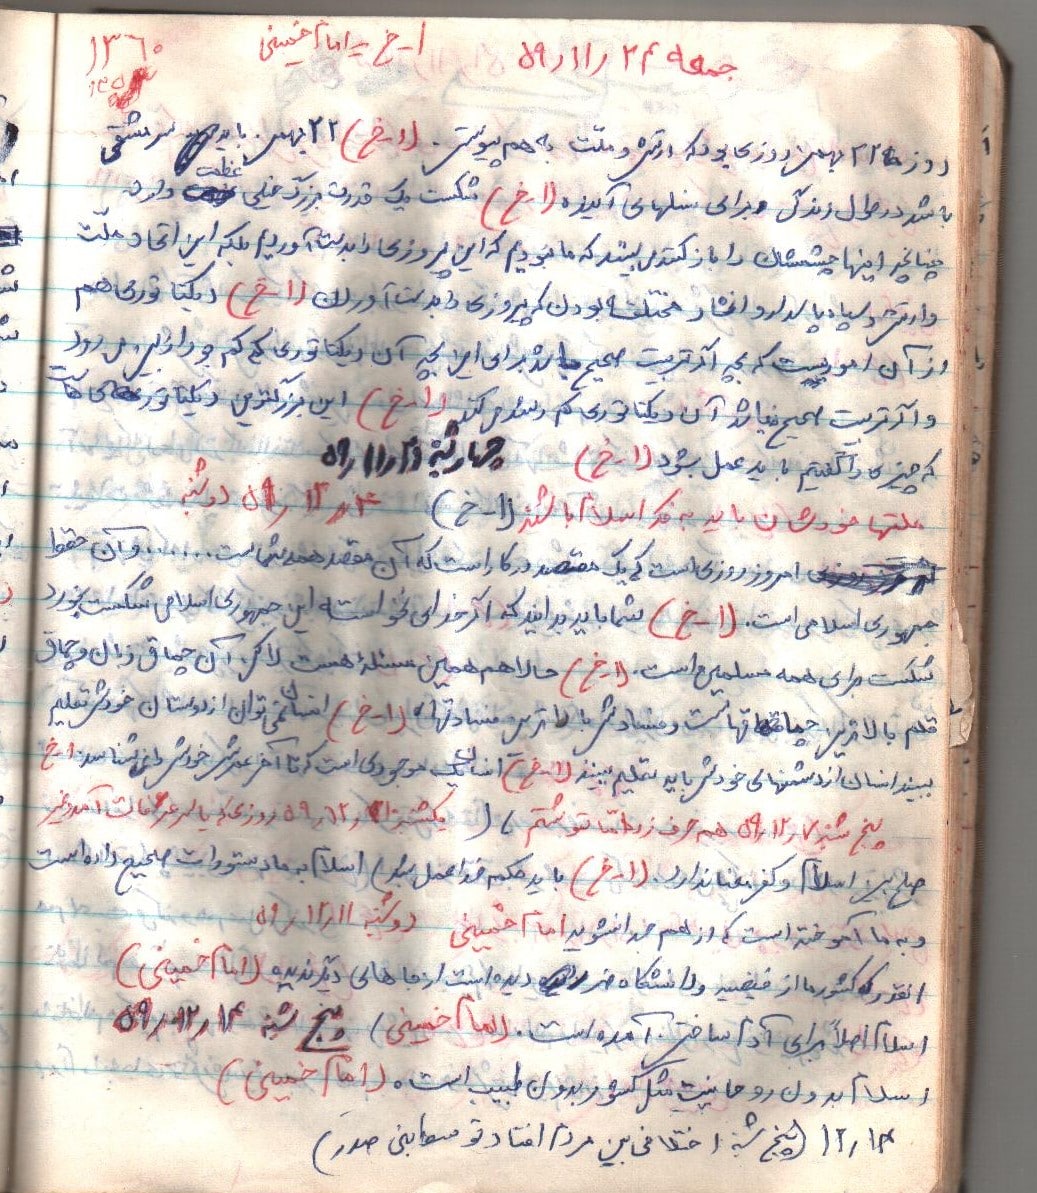 جمعه ۲۴ ر ۱۱ ر ۵۹ ا-خ = امام خمینی ۱۳۶۰
روز ۲۲ بهمن روزی بود که ارتش و ملت به هم پیوستن. (ا-خ) ۲۲ بهمن باید سرمشقی
باشد در طول زندگی و برای نسلهای آینده (ا-خ) شکست یک قدرت بزرگ خیلی عظمت دارد
چنانچه اینها چشمشان را باز کنند می‌بینند که ما نبودیم که این پیروزی را بدست آوردیم بلکه این اتحاد ملت
و ارتش و سپاه پاسدار و اقشار مختلف بودن که پیروزی را بدست آوردن (ا-خ) دیکتاتوری هم
از آن اموریست که بچه اگر تربیت صحیح باشد برای این بچه آن دیکتاتوری کم کم از بین می رود
و اگر تربیت صحیح نباشد آن دیکتاتوری کم رشد می کند (ا-خ) این بزرگترین دیکتاتوری هاست
که چیزی را گفتیم باید عمل بشود (ا-خ) چهارشنبه ۵۹
ملتها خودشان باید به فکر اسلام باشند (ا-خ) ۴ ر ۱۲ ر ۵۹ دوشنبه
امروز روزی است که یک مقصد در کار است که آن مقصد همه شماست ...... و آن حفظ
جمهوری اسلامی است. (ا-خ) شما باید بدانید که اگر خدای نخواسته این جمهوری اسلامی شکست بخورد
شکست برای همه مسلمین است. (ا-خ) حالا هم همین مسئله هست لاکن آن چماق زبان و چماق
قلم بالاترین چماقهاست و فسادش بالاترین فسادتهاه (ا-خ) انسان نمی توان از دوستان خودش تعلیم
ببیند انسان از دشمنهای خودش باید تعلیم ببیند (ا-خ) انسان یک موجودی است که تا آخر عمرش خودش را نمی شناسد ا-خ
پنج شنبه ۷ ر ۱۲ ر ۵۹ هم حرف زد اما ننوشتم یکشنبه ۱۲ ر ۵۹ روزی که یاسر عرفات آمد
صلح بین اسلام و کفر معنا ندارد. (ا-خ) باید حکم خدا عمل بشود) اسلام به ما دستورات صحیح داده است
و به ما آموخته است که از هم جدا نشوید امام خمینی دوشنبه ۱۱ ر ۱۲ ر ۵۹
انقدر که کشور ما از فیضیه و دانشگاه ضرر دیده است از جاهای دیگر ندیده (امام خمینی)
اسلام اصلاً برای آدم ساختن آمده است. (امام خمینی) پنج شنبه ۱۴ ر ۱۲ ر ۵۹
اسلام بدون روحانیت مثل کشور بدون طبیب است. (امام خمینی)
۱۲ ر ۱۴ (پنج شنبه اختلافی بین مردم افتاد توسط بنی صدر)